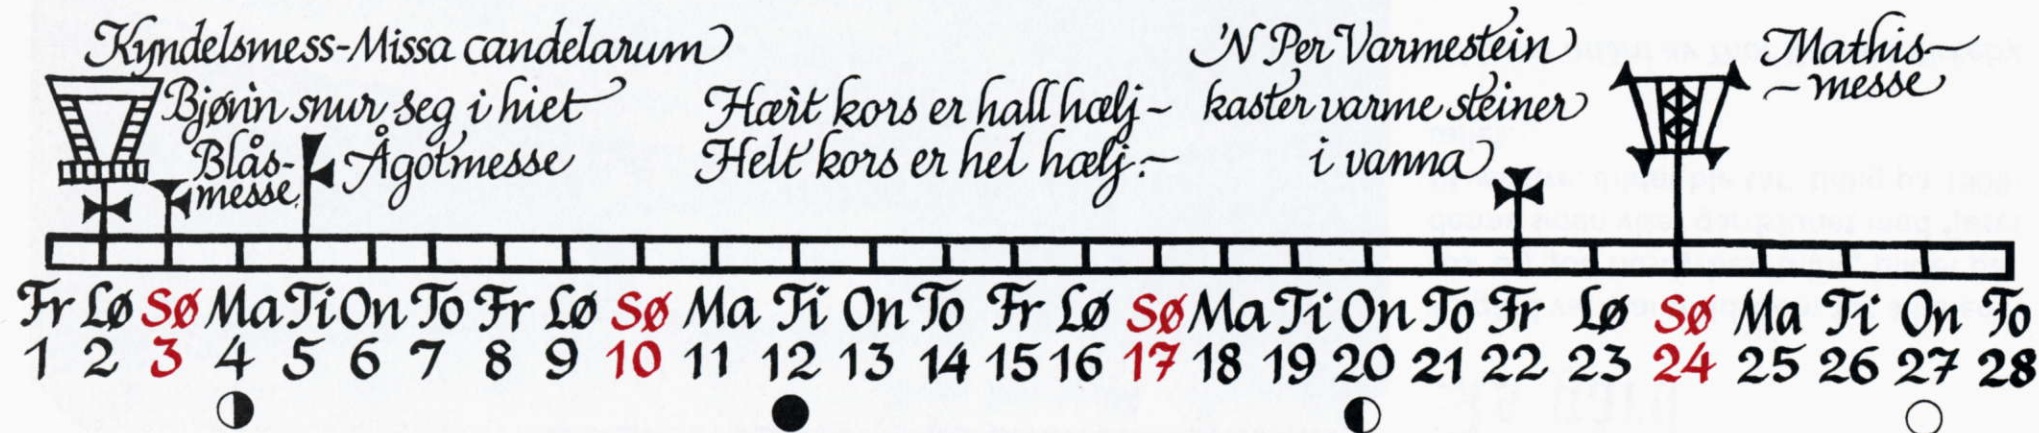 Kyndelsmess-Missa candelarum
Bjønn snur seg i hiet
Blås-
messe
Ågotmesse
Hært kors er hall hælj-
Helt kors er hel hælj.-
'N Per Varmestein
kaster varme steiner
i vanna
Mathis-
-messe
Fr Lø Sø Ma Ti On To Fr Lø Sø Ma Ti On To Fr Lø Sø Ma Ti On To Fr Lø Sø Ma Ti On To
1 2 3 4 5 6 7 8 9 10 11 12 13 14 15 16 17 18 19 20 21 22 23 24 25 26 27 28